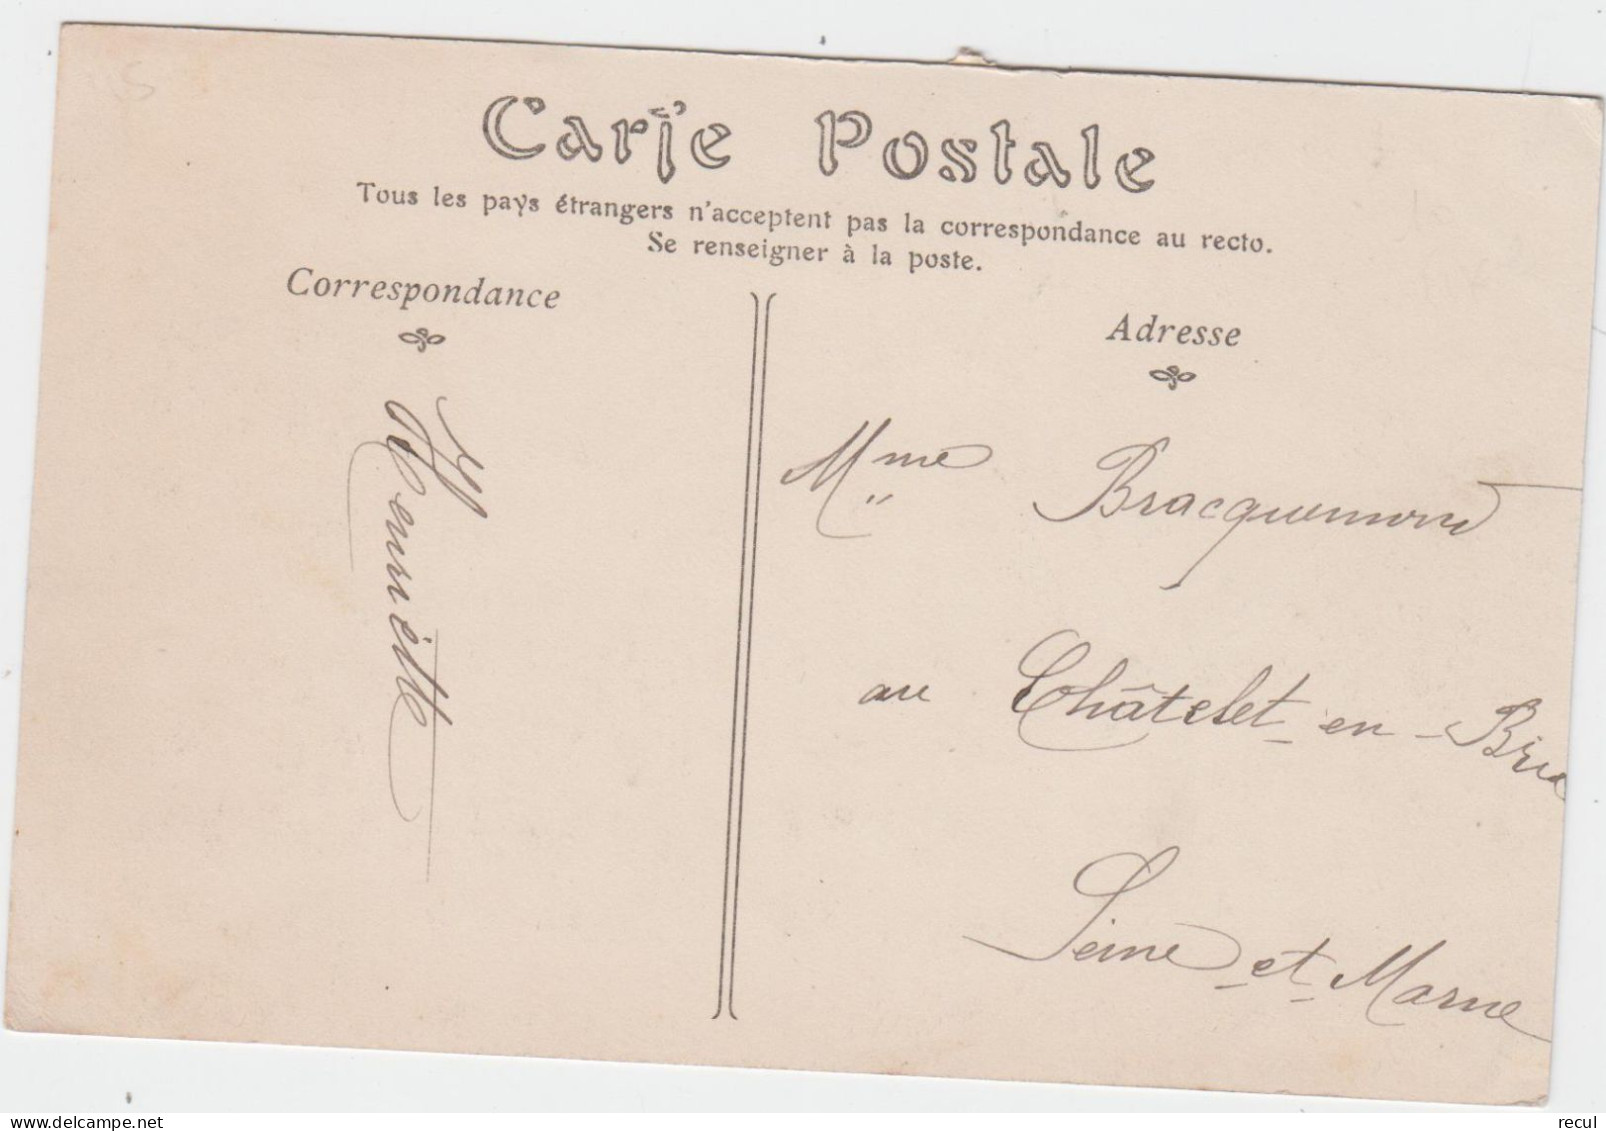 Carte Postale
Tous les pays étrangers n'acceptent pas la correspondance au recto.
Se renseigner à la poste.
Correspondance
Adresse
Henriette
Mme Bracquemond
au Châtelet-en-Brie
Seine-et-Marne
recul